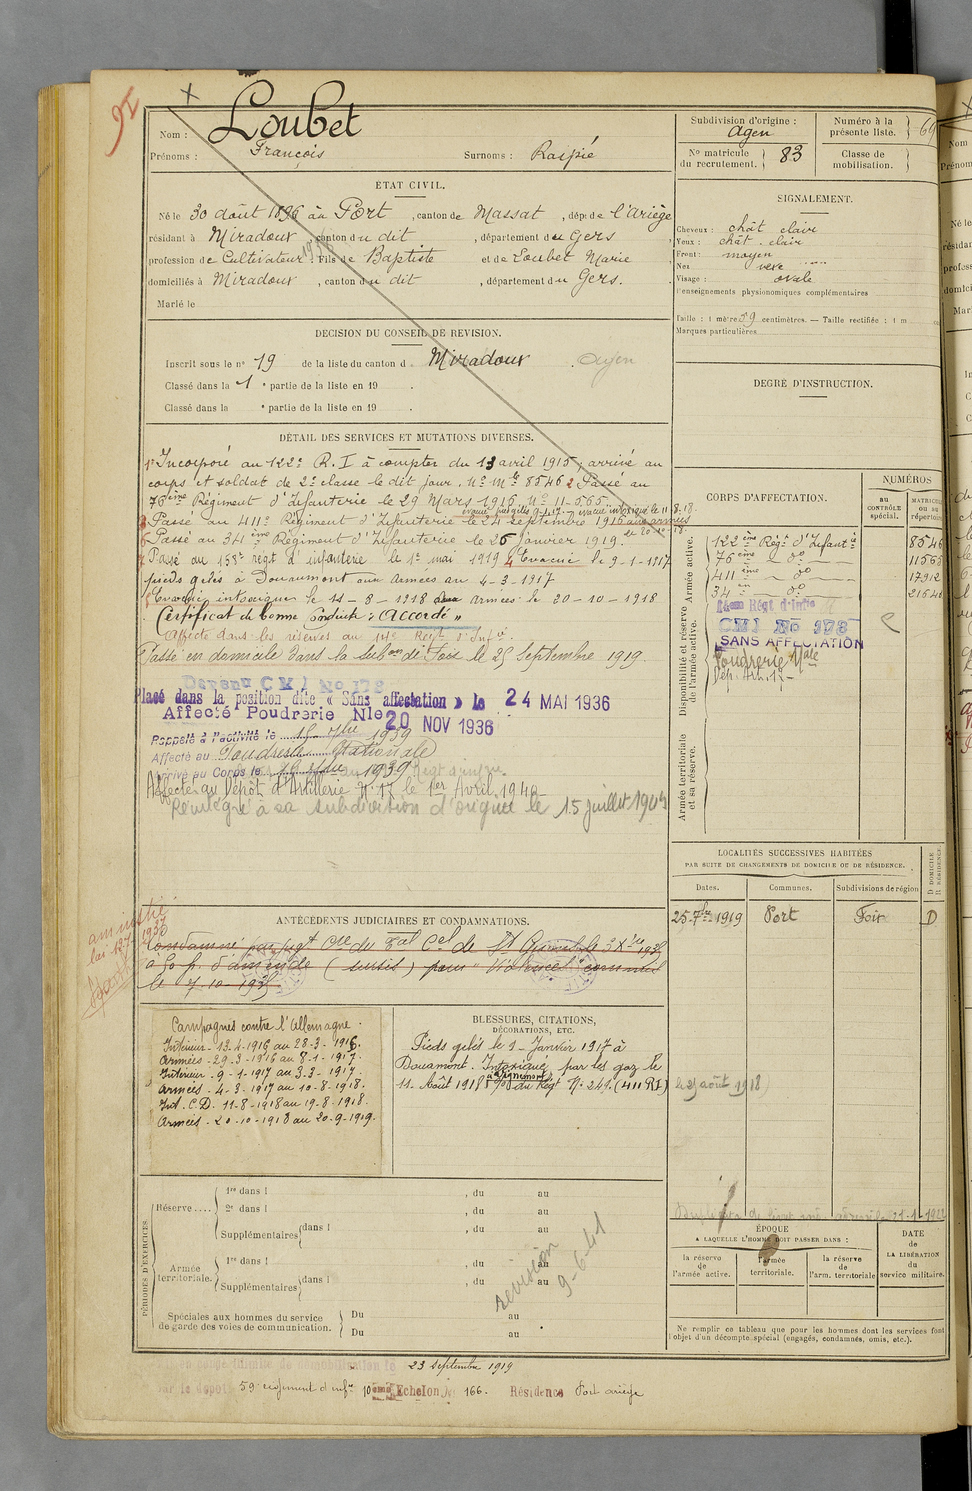 92
Nom : Loubet
Prénoms : François Surnoms : Raspié
Subdivision d'origine : Agen
Numéro à la présente liste. 69
No matricule du recrutement. 83
Classe de mobilisation.
ÉTAT CIVIL.
Né le 30 août 1896 à Port, canton de Massat, dépt de l'Ariège
résidant à Miradoux, canton du dit, département du Gers
profession de Cultivateur, fils de Baptiste et de Loubet Marie
domiciliés à Miradoux, canton du dit, département du Gers.
Marié le
SIGNALEMENT.
Cheveux : chât clair
Yeux : chât. clair
Front : moyen
Nez vexe
Visage : ovale
Renseignements physionomiques complémentaires
Taille : 1 mètre 59 centimètres. — Taille rectifiée : 1 m
Marques particulières
DÉCISION DU CONSEIL DE REVISION.
Inscrit sous le no 19 de la liste du canton d Miradoux. Agen
Classé dans la 1e partie de la liste en 19
Classé dans la e partie de la liste en 19
DEGRÉ D'INSTRUCTION.
DÉTAIL DES SERVICES ET MUTATIONS DIVERSES.
Incorporé au 122e R.I à compter du 13 avril 1915, arrivé au
corps et soldat de 2e classe le dit jour. No Mle 8546 2 Passé au
76ème Régiment d'Infanterie le 29 Mars 1916, No 11565
évacué pieds gelés 9-1-17 évacué intoxiqué le 11-8-18
3 Passé au 411e Régiment d'Infanterie le 24 Septembre 1916 aux armées
le 20-10-18
6 Passé au 34ème Régiment d'Infanterie le 25 janvier 1919.
7 Passé au 158e régt d'infanterie le 1er mai 1919 4 Evacué le 9-1-1917
pieds gelés à Douaumont aux armées au 4-3-1917
5 Evacué intoxiqué le 11-8-1918 aux armées le 20-10-1918
Certificat de bonne conduite "Accordé"
Affecté dans les réserves au 14e Régt d'Infie.
Passé en domicile dans la subon de Foix le 25 Septembre 1919.
Devenu CMI No 178
Placé dans la position dite « Sans affectation » le 24 MAI 1936
Affecté Poudrerie Nle 20 NOV 1936
Rappelé à l'activité le 1939
Affecté au Poudrerie Nationale
Arrivé au Corps le 1939
Affecté au Dépôt d'Artillerie No 17 le 1er Avril 1940
Réintégré à sa subdivision d'origine le 15 juillet
CORPS D'AFFECTATION.
NUMÉROS
au CONTRÔLE spécial.
MATRICULE ou au répertoire
Armée active.
122ème Régt d'Infantie 8546
76ème do 11565
411ème do 17912
34 do 21640
Disponibilité et réserve de l'armée active.
14em Régt d'Infie
CMI No 178
SANS AFFECTATION
Poudrerie Nale
Dép. Art. 17
Armée territoriale et sa réserve.
LOCALITÉS SUCCESSIVES HABITÉES
PAR SUITE DE CHANGEMENTS DE DOMICILE OU DE RÉSIDENCE.
D DOMICILE R RÉSIDENCE.
Dates. Communes. Subdivisions de région
25-7bre-1919 Port Foix D
ANTÉCÉDENTS JUDICIAIRES ET CONDAMNATIONS.
amnistié
loi 1937
Condamné par jugt Cre du Tal Cel de St Girons le
à 50 fr. d'amende (sursis) pour violences commises
le 7-10-1935
Campagnes contre l'Allemagne.
Intérieur - 13-4-1916 au 28-3-1916.
Armées - 29-3-1916 au 8-1-1917.
Intérieur - 9-1-1917 au 3-3-1917.
Armées - 4-3-1917 au 10-8-1918.
Int. C.D. 11-8-1918 au 19-8-1918.
Armées - 20-10-1918 au 20-9-1919.
BLESSURES, CITATIONS,
DÉCORATIONS, ETC.
Pieds gelés le 9-Janvier 1917 à
Douamont. Intoxiqué par les gaz le
11 Août 1918 du Régt No 241. (411 RI) le 29 août 1918
PÉRIODES D'EXERCICES.
Réserve.... 1re dans l , du au
2e dans l , du au
Supplémentaires dans l , du au
Armée territoriale. 1re dans l , du au
Supplémentaires dans l , du au
Spéciales aux hommes du service de garde des voies de communication. Du au
Du au
revision
9-6-41
ÉPOQUE
A LAQUELLE L'HOMME DOIT PASSER DANS :
la réserve de l'armée active.
l'armée territoriale.
la réserve de l'arm. territoriale
DATE de LA LIBÉRATION du service militaire.
Ne remplir ce tableau que pour les hommes dont les services font
l'objet d'un décompte spécial (engagés, condamnés, omis, etc.).
congé illimité de démobilisation le 23 septembre 1919
par le dépôt 59e régiment d'infie 10eme Echelon No 166. Résidence Port ariège